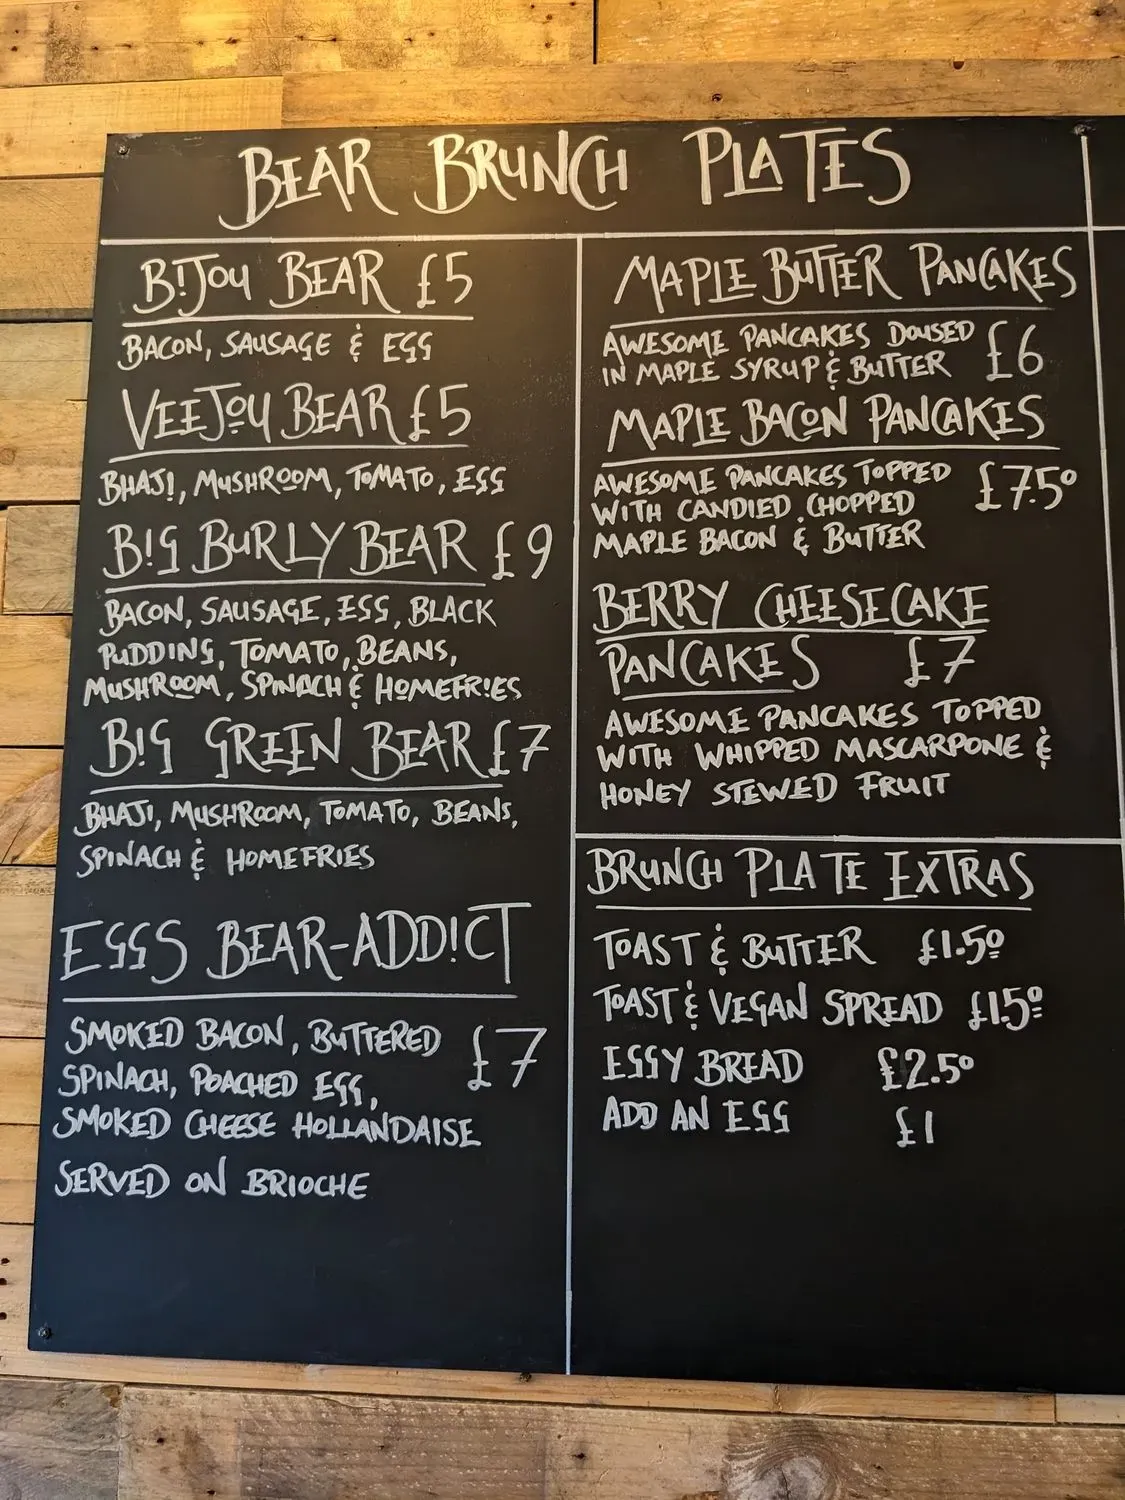 BEAR BRUNCH PLATES
BIJOU BEAR £5
BACON, SAUSAGE & EGG
VEEJOU BEAR £5
BHAJI, MUSHROOM, TOMATO, EGG
BIG BURLY BEAR £9
BACON, SAUSAGE, EGG, BLACK
PUDDING, TOMATO, BEANS,
MUSHROOM, SPINACH & HOMEFRIES
BIG GREEN BEAR £7
BHAJI, MUSHROOM, TOMATO, BEANS,
SPINACH & HOMEFRIES
EGGS BEAR-ADDICT
SMOKED BACON, BUTTERED £7
SPINACH, POACHED EGG,
SMOKED CHEESE HOLLANDAISE
SERVED ON BRIOCHE
MAPLE BUTTER PANCAKES
AWESOME PANCAKES DOUSED £6
IN MAPLE SYRUP & BUTTER
MAPLE BACON PANCAKES
AWESOME PANCAKES TOPPED £7.50
WITH CANDIED CHOPPED
MAPLE BACON & BUTTER
BERRY CHEESECAKE
PANCAKES £7
AWESOME PANCAKES TOPPED
WITH WHIPPED MASCARPONE &
HONEY STEWED FRUIT
BRUNCH PLATE EXTRAS
TOAST & BUTTER £1.50
TOAST & VEGAN SPREAD £1.50
EGGY BREAD £2.50
ADD AN EGG £1